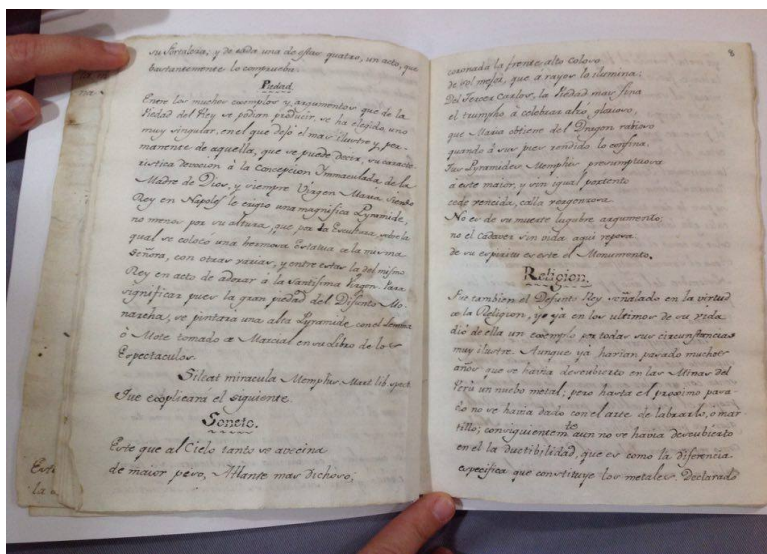 su Fortaleza; y de cada una de estas quatro, un acto, que
bastantemente lo comprueba.
Piedad.
Entre los muchos exemplos y argumentos que de la
Piedad del Rey se podian producir, se ha elegido uno
muy singular, en el que dejó el mas ilustre y per-
manente de aquella, que se puede decir, su caracte-
ristica devocion à la Concepcion Immaculada de la
Madre de Dios, y siempre Virgen Maria. Siendo
Rey en Napoles le erigio una magnifica Pyramide,
no menos por su altura, que por la Escultura, sobre la
qual se colocò una hermosa Estatua de la misma
Señora, con otras varias, y entre estas la del mismo
Rey en acto de adorar à la Santisima Virgen. Para
significar pues la gran piedad del Difunto Mo-
narcha, se pintara una alta Pyramide con el
ò Mote tomado de Marcial en su Libro de los
Espectaculos.
Sileat miracula Memphis. Mart. lib. spect.
Que explicara el siguiente
Soneto.
Este que al Cielo tanto se avecina
de maior peso, Atlante mas dichoso,
8
coronada la frente alto Coloso
de sol mejor, que a rayos lo ilumina:
Del Tercer Carlos, la Piedad mas fina
el triumpho à celebrar alzò glorioso,
que Maria obtiene del Dragon rabioso
quando à sus pies rendido lo confina.
Sus Pyramides Memphis presumptuosa
à este maior, y sin igual portento
cede rendida, calla vergonzosa.
No es de su muerte lugubre argumento;
no el cadaver sin vida aqui reposa
de su espiritu es este el Monumento.
Religion.
Fue tambien el Defunto Rey señalado en la virtud
de la Religion, y yà en los ultimos de su vida
diò de ella un exemplo por todas sus circunstancias
muy ilustre. Aunque yà harian pasado muchos
años que se havia descubierto en las Minas del
Perù un nuebo metal; pero hasta el proximo pasa-
do no se havia dado con el arte de labrarlo, o mar-
tillo; consiguientemte. aun no se havia descubierto
en el la ductibilidad, que es como la diferencia
especifica que constituye los metales. Declarado